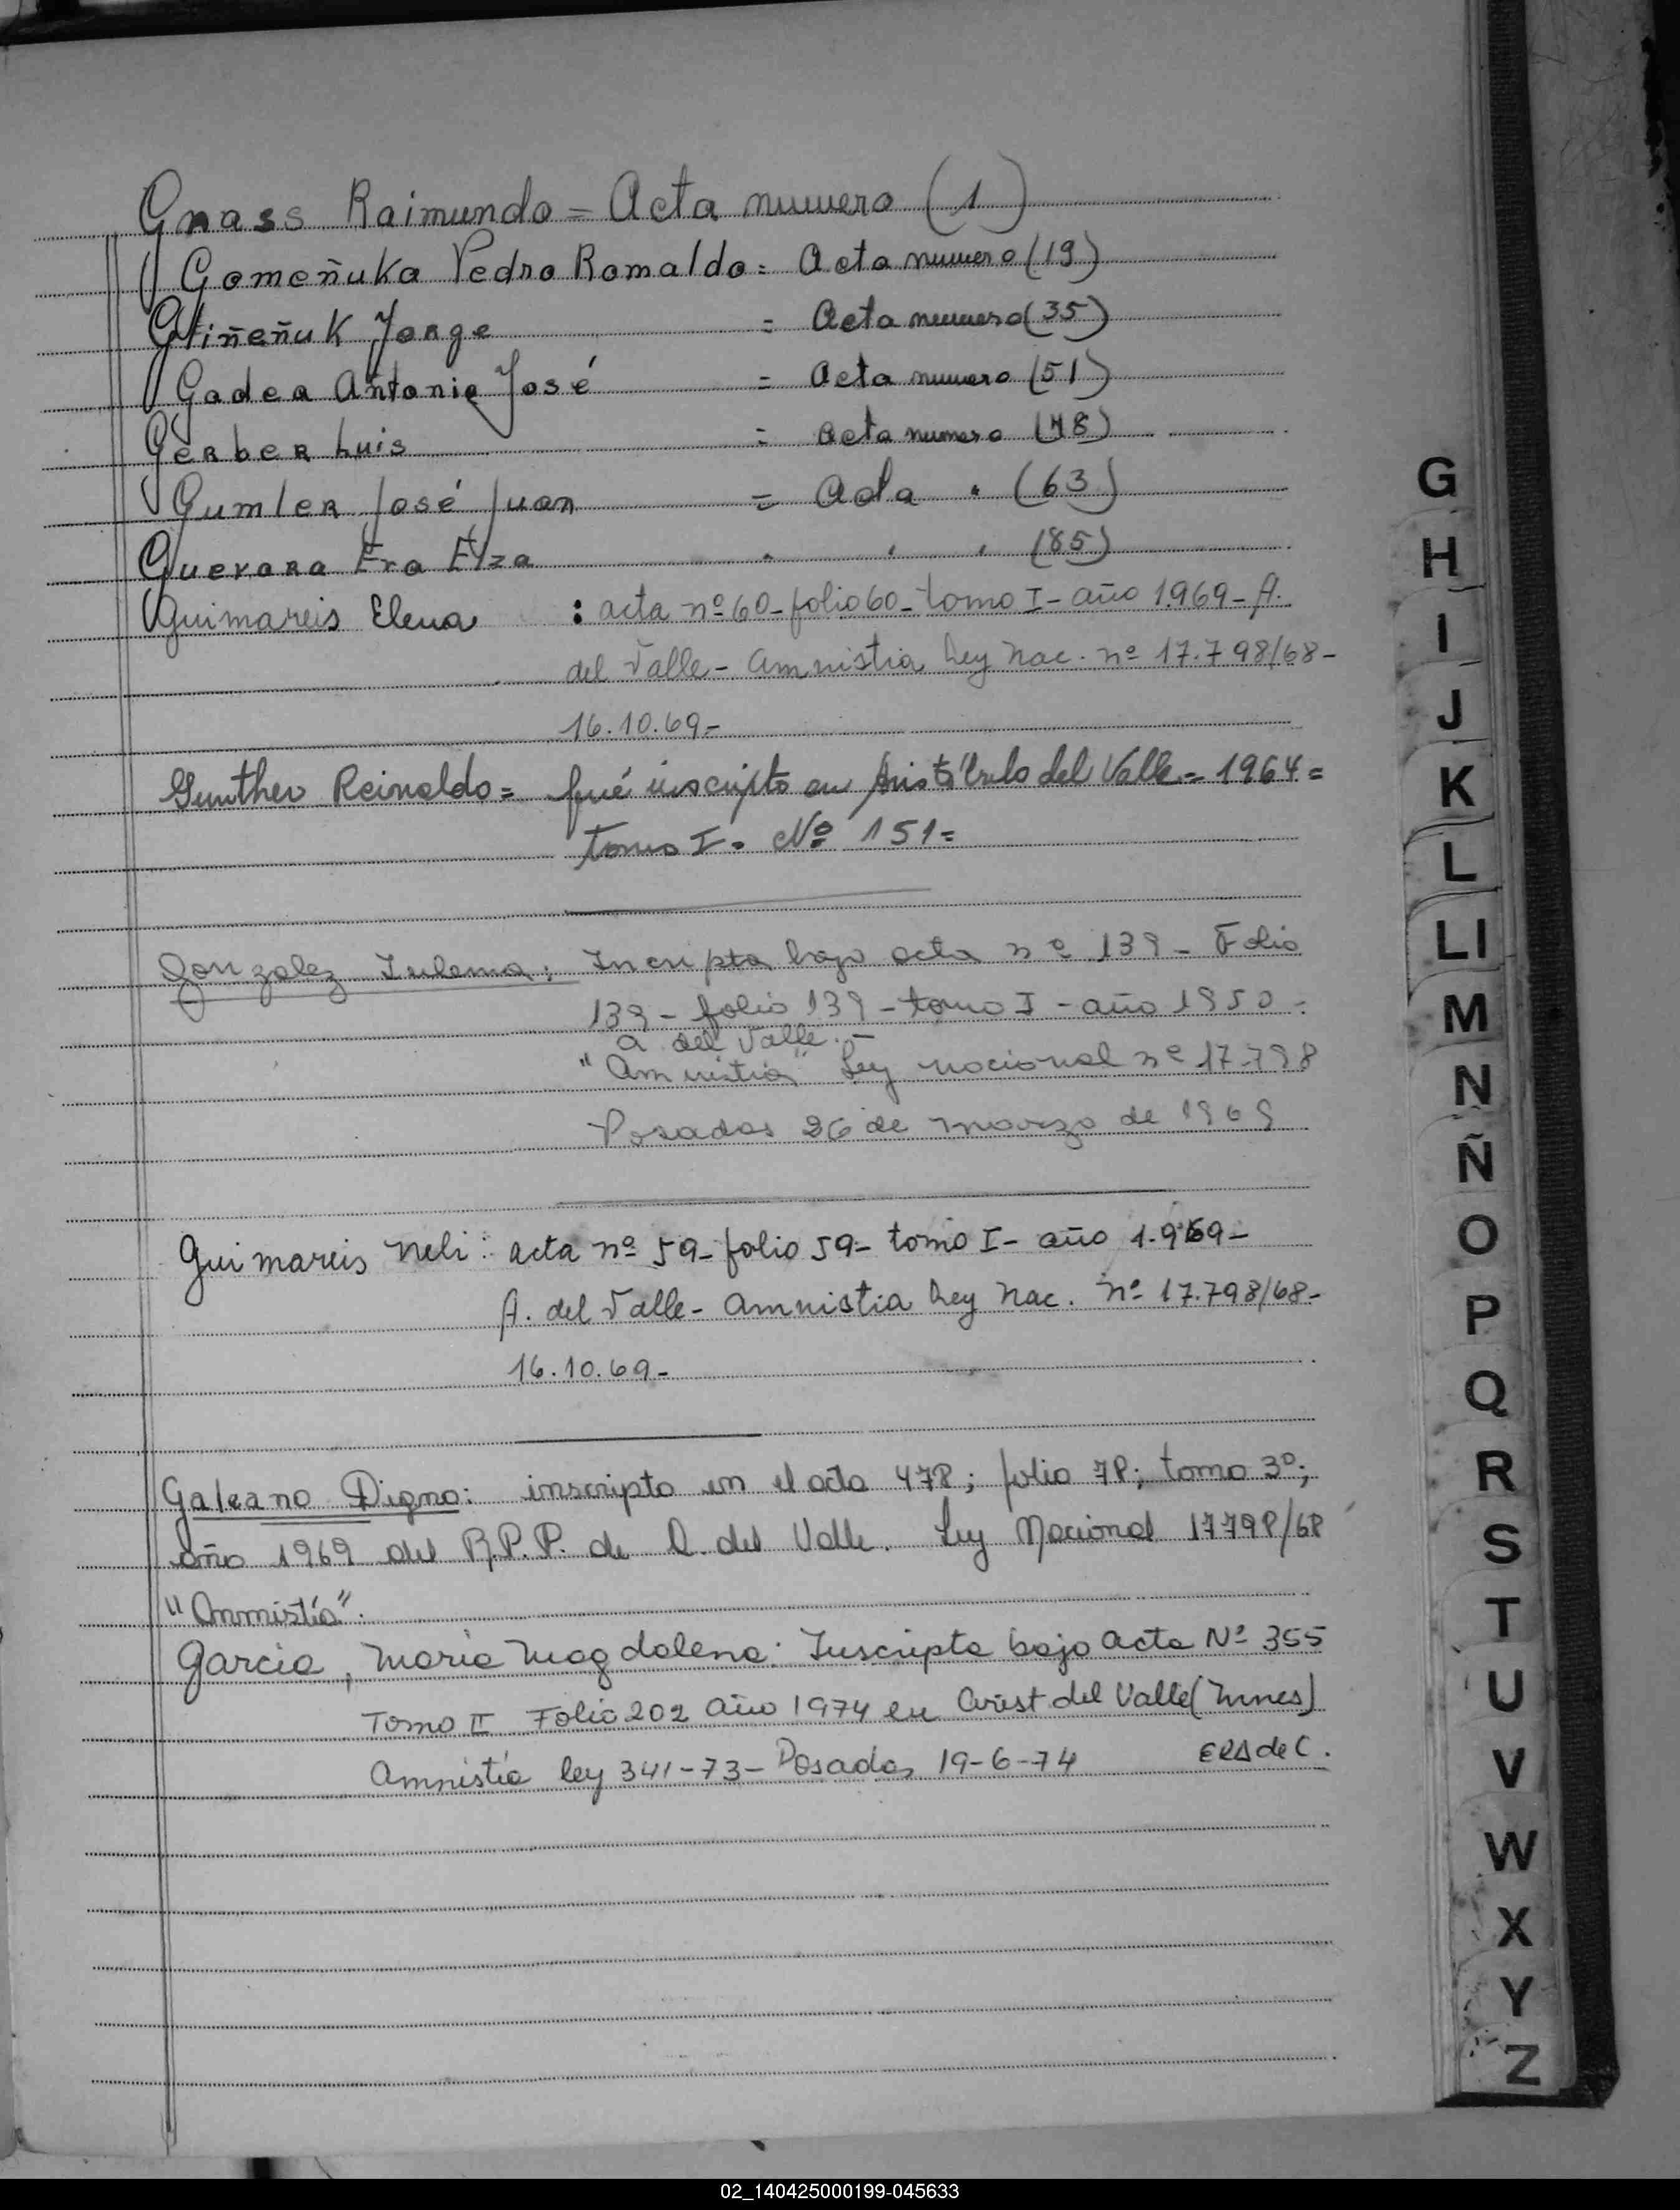 Gnass Raimundo = Acta numero (1)
Gomeñuka Pedro Romaldo = Acta numero (19)
Gliñeñuk Jorge = Acta numero (35)
Gadea Antonio José = Acta numero (51)
Gerber Luis = Acta numero (78)
Gumler José Juan = Acta " (63)
Guevara Era Elza " " " (85)
Guimareis Elena : acta nº 60 - folio 60 - tomo I - año 1.969 - A.
del Valle - Amnistia Ley Nac. nº 17.798/68 -
16.10.69 -
Gunther Reinaldo = fué inscripto en Aristóbulo del Valle = 1964 =
tomo I. Nº 151 =
Gonzalez Zulema : Incripta bajo acta nº 139 - Folio
139 - folio 139 - tomo I - año 1950 -
a del Valle. -
"Amnistia" Ley nacional nº 17.798
Posadas 26 de marzo de 1969
Guimareis Neli : acta nº 59 - folio 59 - tomo I - año 1.969 -
A. del Valle - Amnistia Ley Nac. nº 17.798/68 -
16.10.69 -
Galeano Digno : inscripto en el acta 478; folio 78; tomo 3º;
año 1969 del R.P.P. de A. del Valle. Ley Nacional 17798/68
"Amnistía".
Garcia, Maria Magdalena : Inscripta bajo acta Nº 355
Tomo II Folio 202 año 1974 en Arist del Valle
Amnistía ley 341-73 - Posadas 19-6-74
G
H
I
J
K
L
Ll
M
N
Ñ
O
P
Q
R
S
T
U
V
W
X
Y
Z
02_140425000199-045633